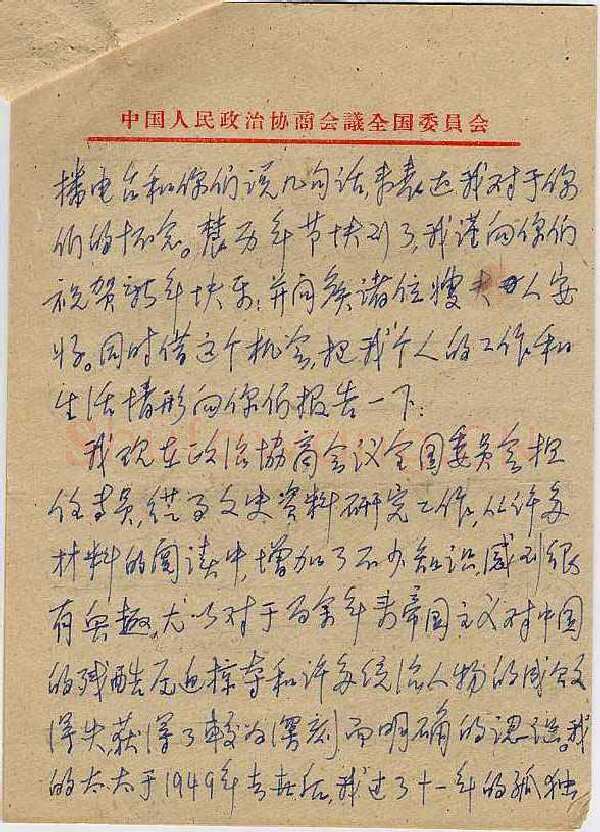 中国人民政治协商会議全国委員会
播电台和你们说几句话,来表达我对于你
们的怀念。农历年节快到了,我谨向你们
祝贺新年快乐;并问候诸位嫂夫人安
好。同时借这个机会,把我个人的工作和
生活情形向你们报告一下:
我现在政治协商会议全国委员会担
任专员,从事文史资料研究工作,从许多
材料的阅读中,增加了不少知识,感到很
有兴趣。尤以对于百余年来帝国主义对中国
的残酷压迫掠夺和许多统治人物的成败
得失,获得了较为深刻而明确的認识。我
的太太于1949年去世后,我过了十一年的孤独